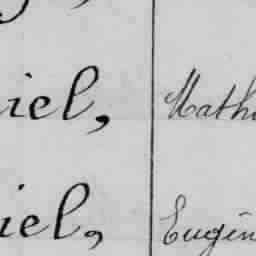 iel, Math
iel, Eugèn